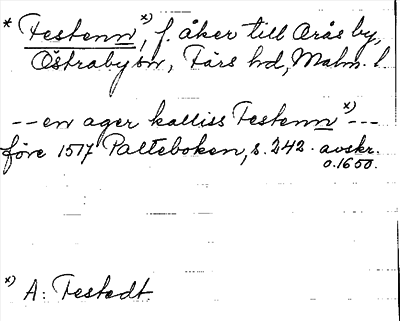 * Festenn x), f. åker till Arås by,
Östraby sn, Färs hd, Malm. l.
-- en ager kalliss Festenn x) ---
före 1517 Palteboken, s. 242. avskr.
o. 1650.
x) A: Festedt.